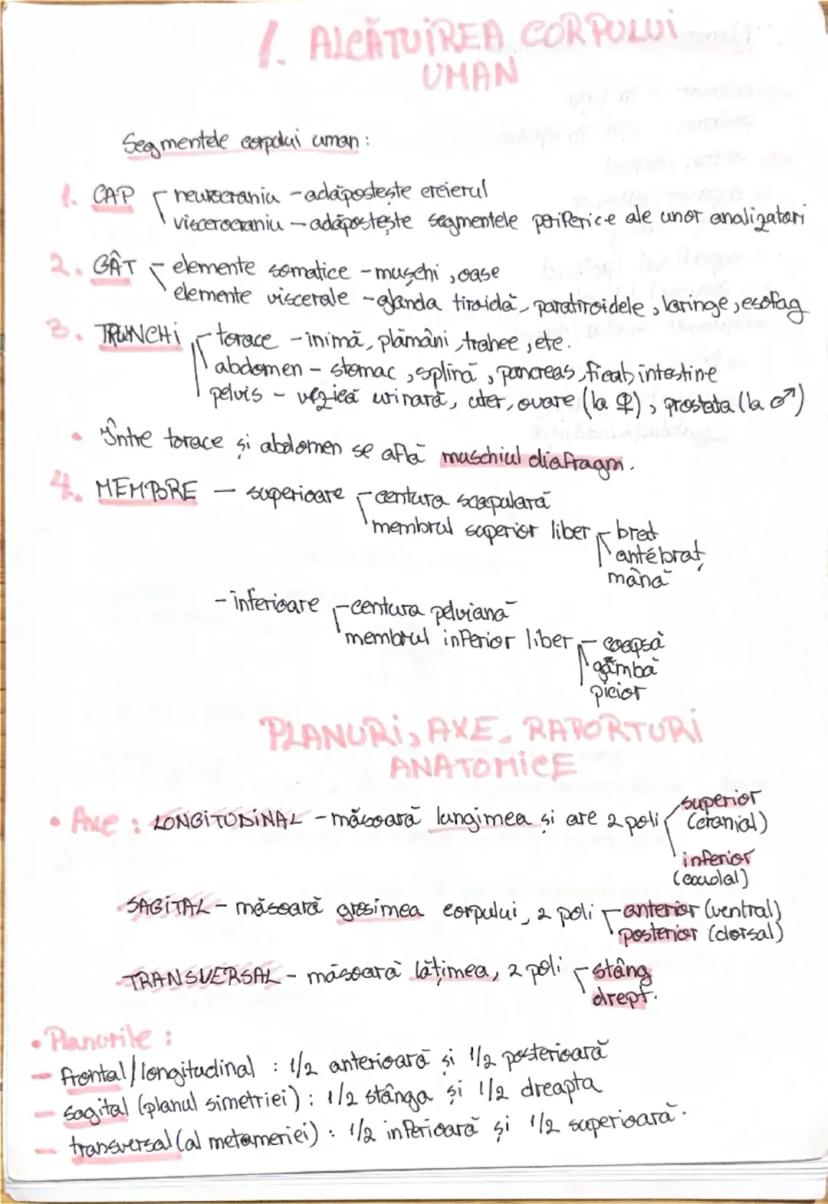 1. ALCĂTUIREA CORPULUI
UMAN
Segmentele corpului uman:
1. CAP - neurocraniu - adăpostește creierul
viscerocraniu - adăpostește segmentele periferice ale unor analizatori
2. GÂT - elemente somatice - mușchi, oase
elemente viscerale - glanda tiroidă, paratiroidele, laringe, esofag
3. TRUNCHI - torace - inimă, plămâni, trahee, etc.
abdomen - stomac, splină, pancreas, ficat, intestine
pelvis - vezică urinară, uter, ovare (la ♀), prostata (la ♂)
• Între torace și abdomen se află muschiul diafragm.
4. MEMBRE - superioare - centura scapulară
membrul superior liber - braț
antebraț
mână
- inferioare - centura pelviană
membrul inferior liber - coapsă
gambă
picior
PLANURI, AXE, RAPORTURI
ANATOMICE
• Axe: LONGITUDINAL - măsoară lungimea și are 2 poli superior
(cranial)
inferior
(caudal)
SAGITAL - măsoară grosimea corpului, 2 poli - anterior (ventral)
posterior (dorsal)
TRANSVERSAL - măsoară lățimea, 2 poli - stâng
drept.
• Planurile:
- frontal/longitudinal : 1/2 anterioară și 1/2 posterioară
- sagital (planul simetriei) : 1/2 stânga și 1/2 dreapta
- transversal (al metameriei) : 1/2 inferioară și 1/2 superioară.